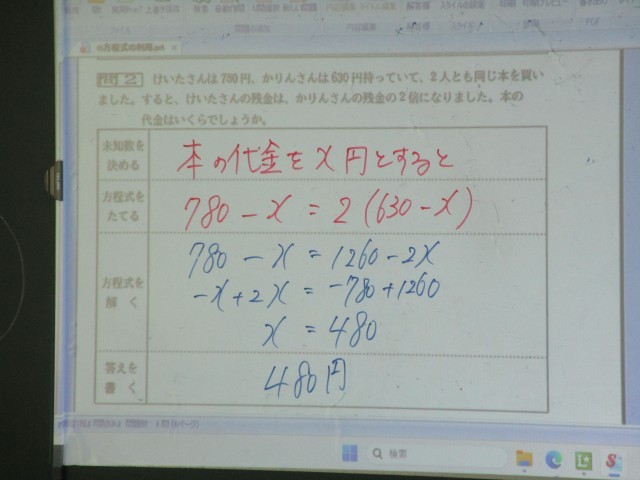 問2 けいたさんは780円、かりんさんは630円持っていて、2人とも同じ本を買い
ました。すると、けいたさんの残金は、かりんさんの残金の2倍になりました。本の
代金はいくらでしょうか。
未知数を
決める
本の代金をx円とすると
方程式を
たてる
780 - x = 2(630 - x)
方程式を
解く
780 - x = 1260 - 2x
-x + 2x = -780 + 1260
x = 480
答えを
書く
480円
検索